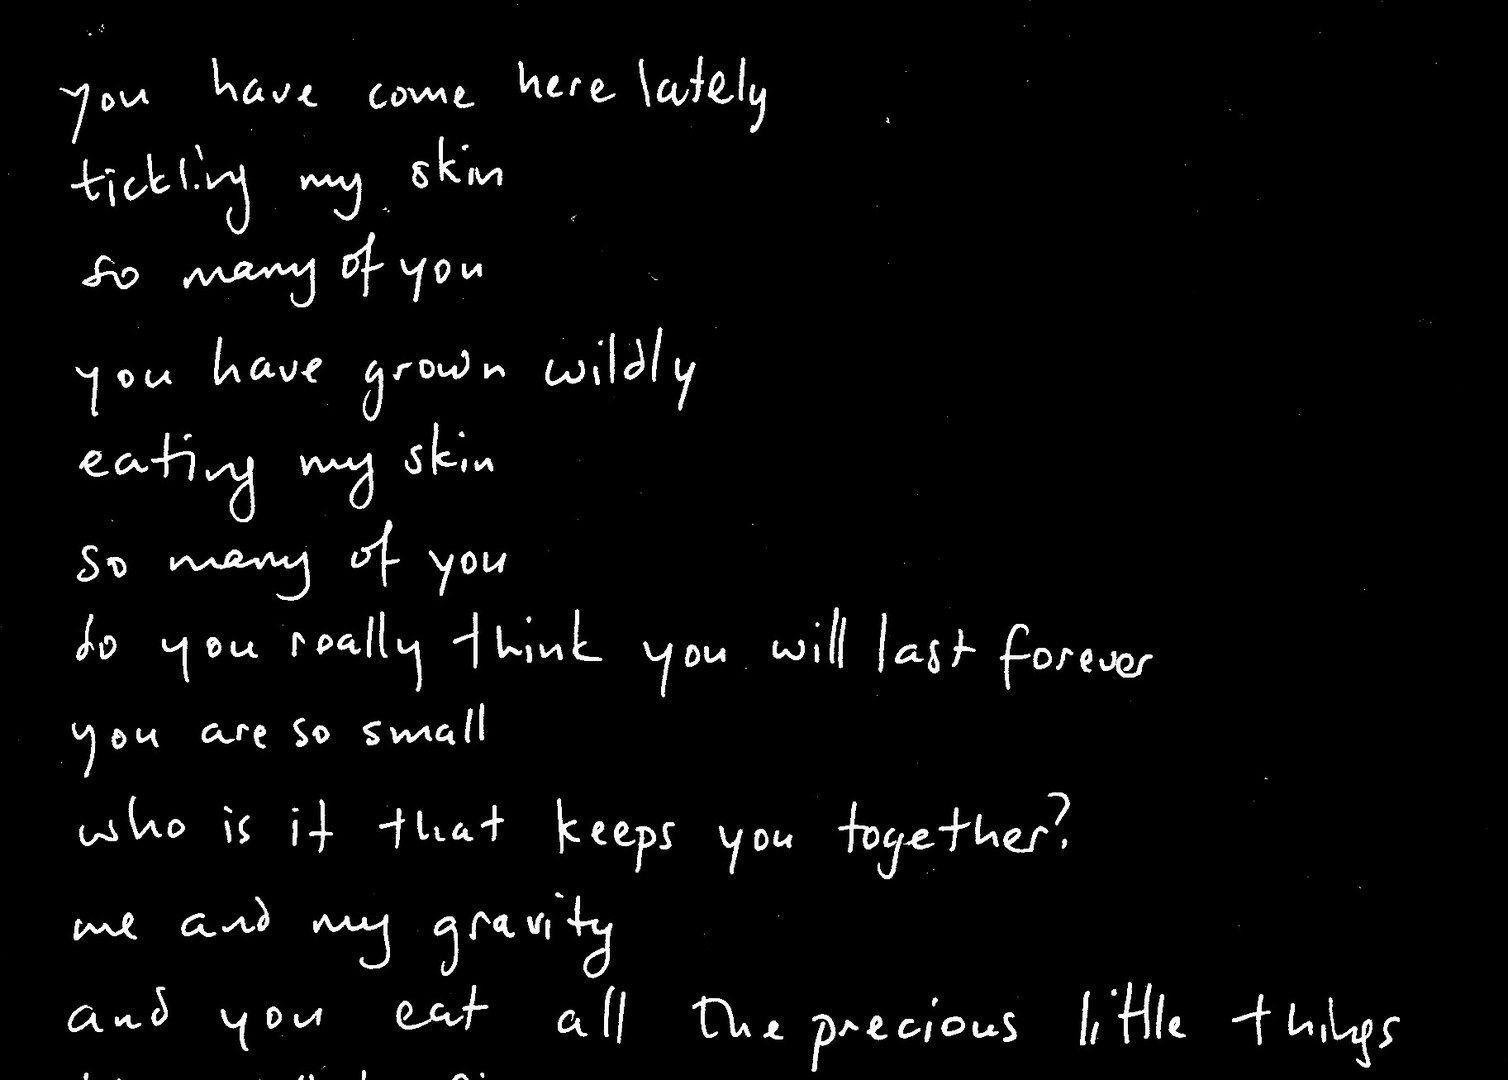 you have come here lately
tickling my skin
so many of you
you have grown wildly
eating my skin
so many of you
do you really think you will last forever
you are so small
who is it that keeps you together?
me and my gravity
and you eat all the precious little things